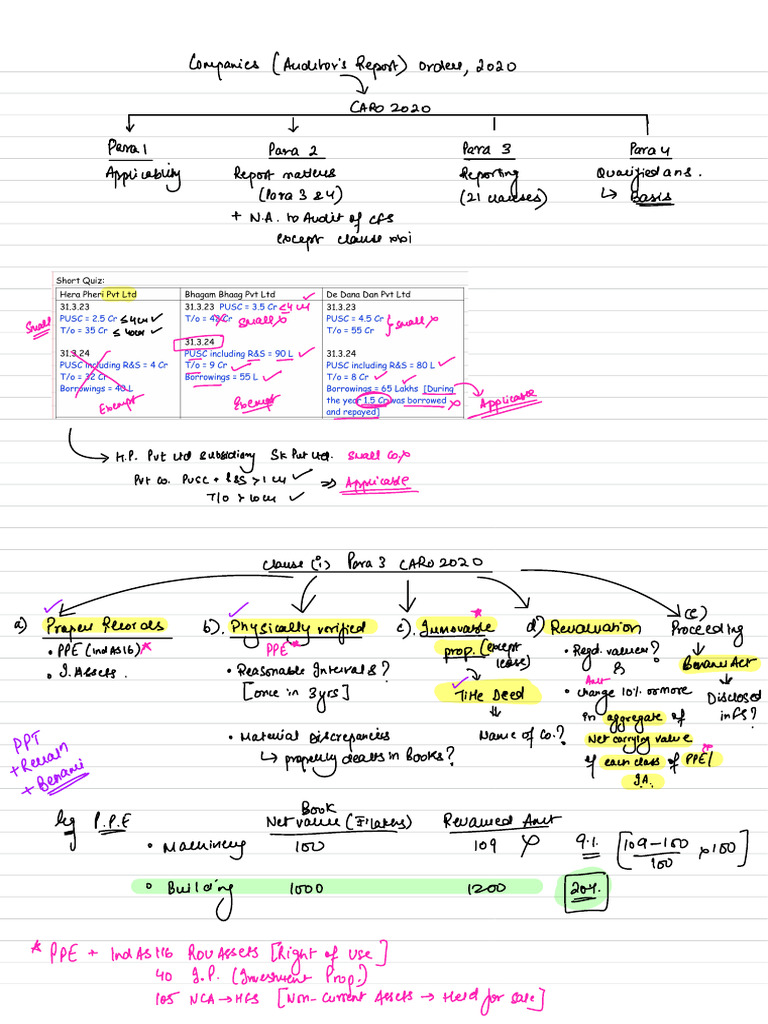 Companies (Auditor's Report) Orders, 2020
CARO 2020
Para 1
Applicability
Para 2
Report matters
(Para 3 & 4)
+ N.A. to Audit of CFS
except clause xxi
Para 3
Reporting
(21 clauses)
Para 4
Qualified ans.
↳ Basis
Short Quiz:
Hera Pheri Pvt Ltd
31.3.23
PUSC = 2.5 Cr ≤ 4 cr ✓
T/o = 35 Cr ≤ 40cr ✓
Small
31.3.24
PUSC including R&S = 4 Cr
T/o = 32 Cr
Borrowings = 40 L
Exempt
Bhagam Bhaag Pvt Ltd ✓
31.3.23 PUSC = 3.5 Cr ≤ 4 cr
T/o = 42 Cr small x
31.3.24
PUSC including R&S = 90 L ✓
T/o = 9 Cr ✓
Borrowings = 55 L ✓
Exempt
De Dana Dan Pvt Ltd
31.3.23
PUSC = 4.5 Cr
T/o = 55 Cr
} small x
31.3.24
PUSC including R&S = 80 L ✓
T/o = 8 Cr ✓
Borrowings = 65 Lakhs [During
the year 1.5 Cr was borrowed x
and repayed]
Applicable
→ H.P. Pvt Ltd subsidiary SK Pvt Ltd. small Co. x
Pvt Co. PUSC + R&S > 1 cr ✓
T/O > 10 cr ✓
⇒ Applicable
Clause (i) Para 3 CARO 2020
a) Proper Records
• PPE (Ind AS 16) *
• I. Assets
b). Physically verified
PPE *
• Reasonable Intervals?
[once in 3 yrs]
• Material Discrepancies
↳ properly dealts in Books?
c). Immovable *
prop. (except
lease)
✓ Title Deed
Name of Co.?
d) Revaluation
• Regd. valuer?
&
Amt
• change 10% or more
in aggregate of
Net carrying value
of each class of PPE */
I.A.
(e)
Proceeding
Benami Act
Disclosed
in FS?
PPT
+ Reval n
+ Benami
Eg P.P.E
Book
Net value (₹ in lakhs)
Revalued Amt
• Machinery 100 109 x 9% [109-100/100 x 100]
• Building 1000 1200 20%
* PPE + Ind AS 116 ROU Assets [Right of use]
40 I.P. (Investment Prop.)
105 NCA → HFS [Non-current Assets → Held for sale]